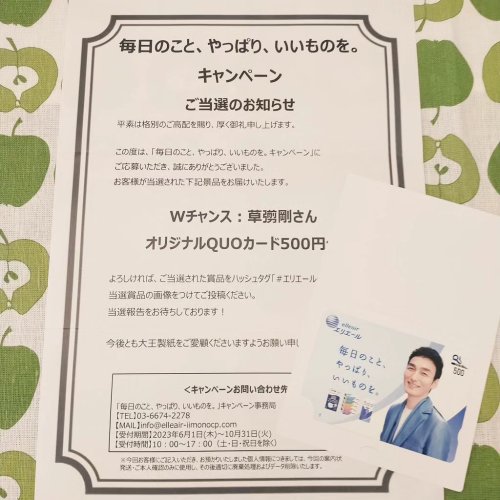 毎日のこと、やっぱり、いいものを。
キャンペーン
ご当選のお知らせ
平素は格別のご高配を賜り、厚く御礼申し上げます。
この度は、「毎日のこと、やっぱり、いいものを。キャンペーン」に
ご応募いただき、誠にありがとうございました。
お客様が当選された下記景品をお届けいたします。
Wチャンス：草彅剛さん
オリジナルQUOカード500円
よろしければ、ご当選された賞品をハッシュタグ「#エリエール
当選賞品の画像をつけてご投稿ください。
当選報告をお待ちしております！
今後とも大王製紙をご愛顧くださいますようお願い申し
＜キャンペーンお問い合せ先
「毎日のこと、やっぱり、いいものを。」キャンペーン事務局
【TEL】03-6674-2278
【MAIL】info@elleair-iimonocp.com
【受付期間】2023年6月1日(木)～10月31日(火)
【受付時間】10：00～17：00（土・日・祝日を除く）
※今回お客様にご記入いただき、お預かりいたしました個人情報につきましては、今回の案内状
発送・ご本人確認のみに使用し、その後適切に廃棄処理およびデータ削除いたします。
elleair
エリエール
毎日のこと、
やっぱり、
いいものを。
500